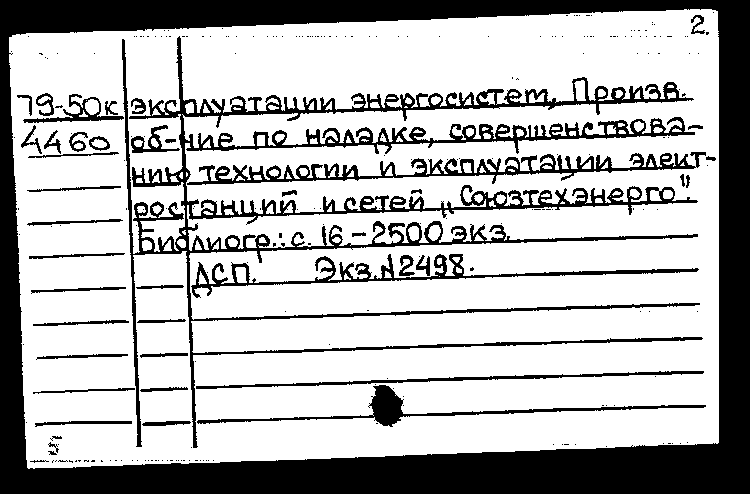 2.
79-50к эксплуатации энергосистем, Произв.
4460 об-ние по наладке, совершенствова-
нию технологии и эксплуатации элект-
ростанций и сетей „Союзтехэнерго".
Библиогр.: с. 16. – 2500 экз.
ДСП. Экз. №2498.
5